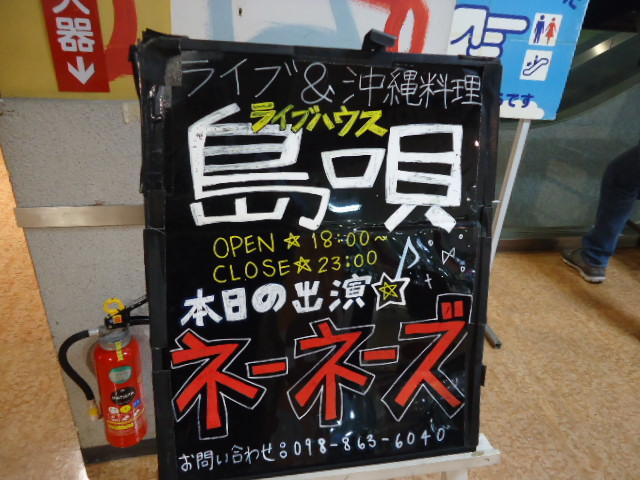 火器
ライブ&沖縄料理
ライブハウス
島唄
OPEN☆18:00~
CLOSE☆23:00
本日の出演☆
ネーネーズ
お問い合わせ:098-863-6040
です